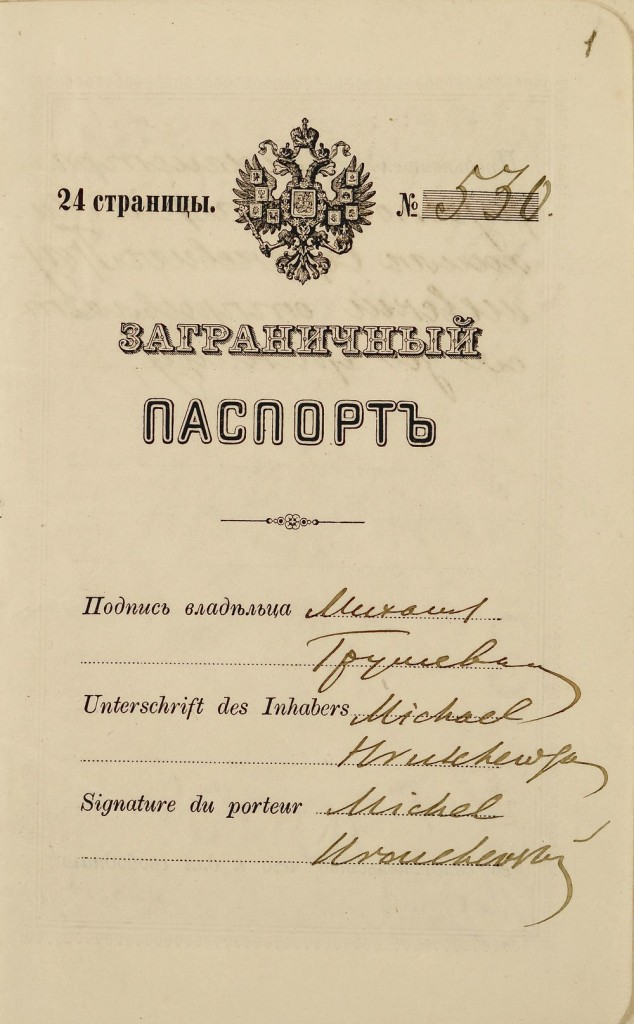 1
24 страницы. № 530.
ЗАГРАНИЧНЫЙ
ПАСПОРТЪ
Подпись владѣльца Михаил
Грушевс
Unterschrift des Inhabers Michael
Signature du porteur Michel
Hrouchevsky